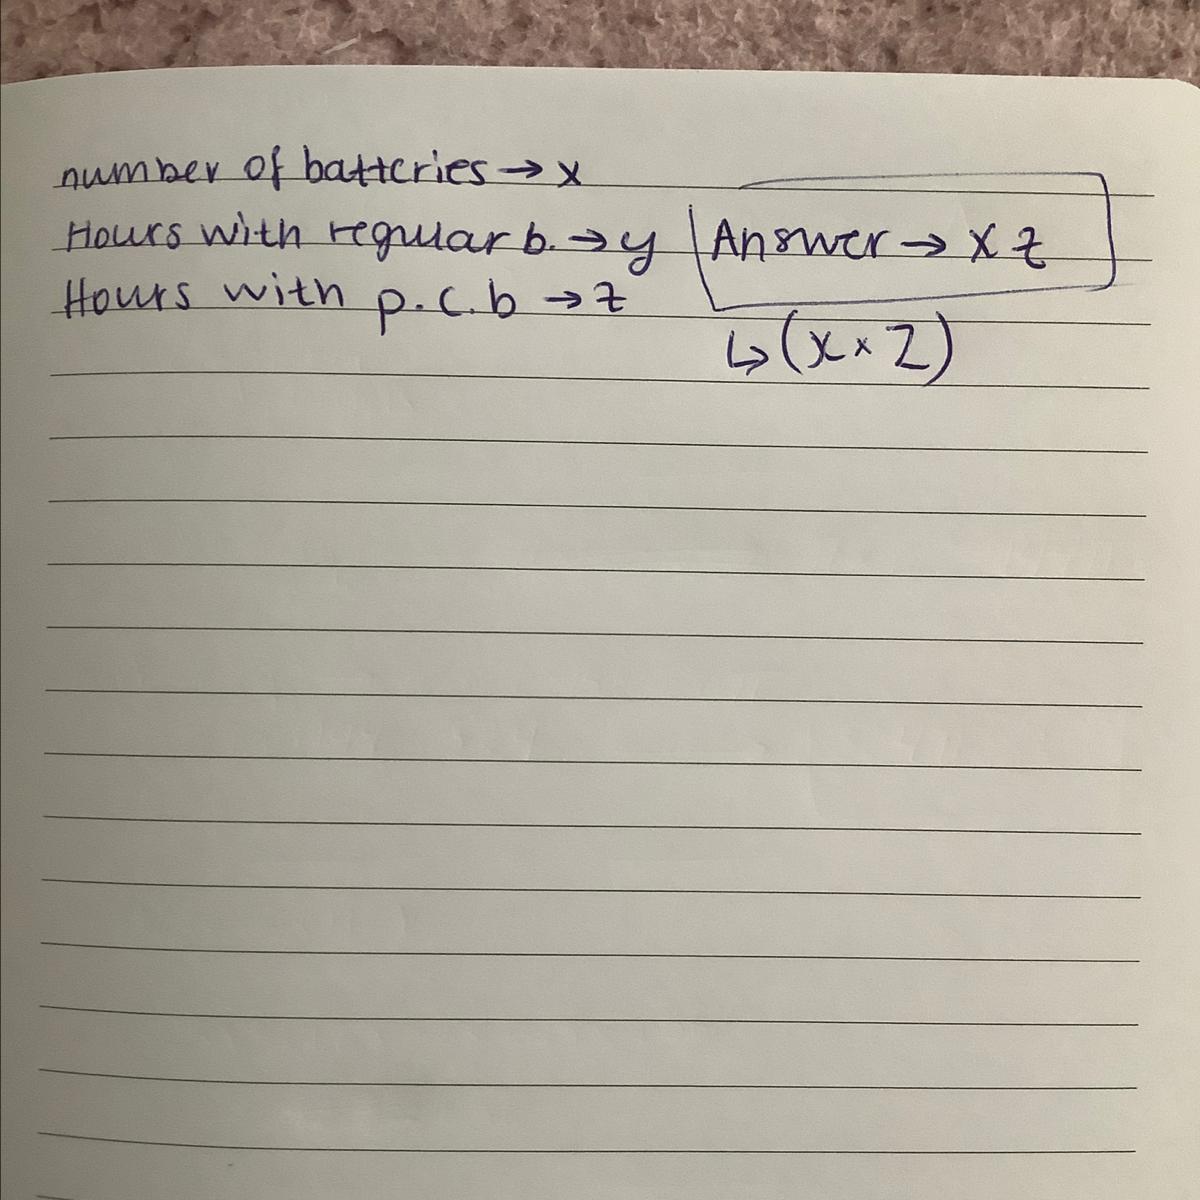 number of batteries → x
Hours with regular b. → y
Hours with p.c.b → z
Answer → x z
↳ (x × z)